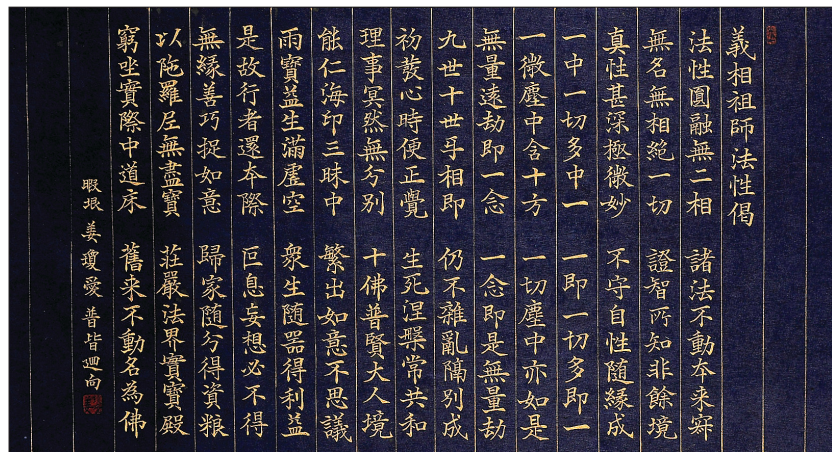 義相祖師法性偈
法性圓融無二相 諸法不動夲来寂
無名無相絶一切 證智所知非餘境
真性甚深極微妙 不守自性随縁成
一中一切多中一 一即一切多即一
一微塵中含十方 一切塵中亦如是
無量遠劫即一念 一念即是無量劫
九世十世㸦相即 仍不雜亂隔別成
初發心時便正覺 生死涅槃常共和
理事冥然無分別 十佛普賢大人境
能仁海印三昧中 繁出如意不思議
雨寶益生滿虛空 衆生随器得利益
是故行者還夲際 叵息妄想必不得
無縁善巧捉如意 歸家随分得資粮
以陁羅尼無盡寶 莊嚴法界實寶殿
窮坐實際中道床 舊来不動名為佛
暇垠 姜瓊愛 普皆廻向